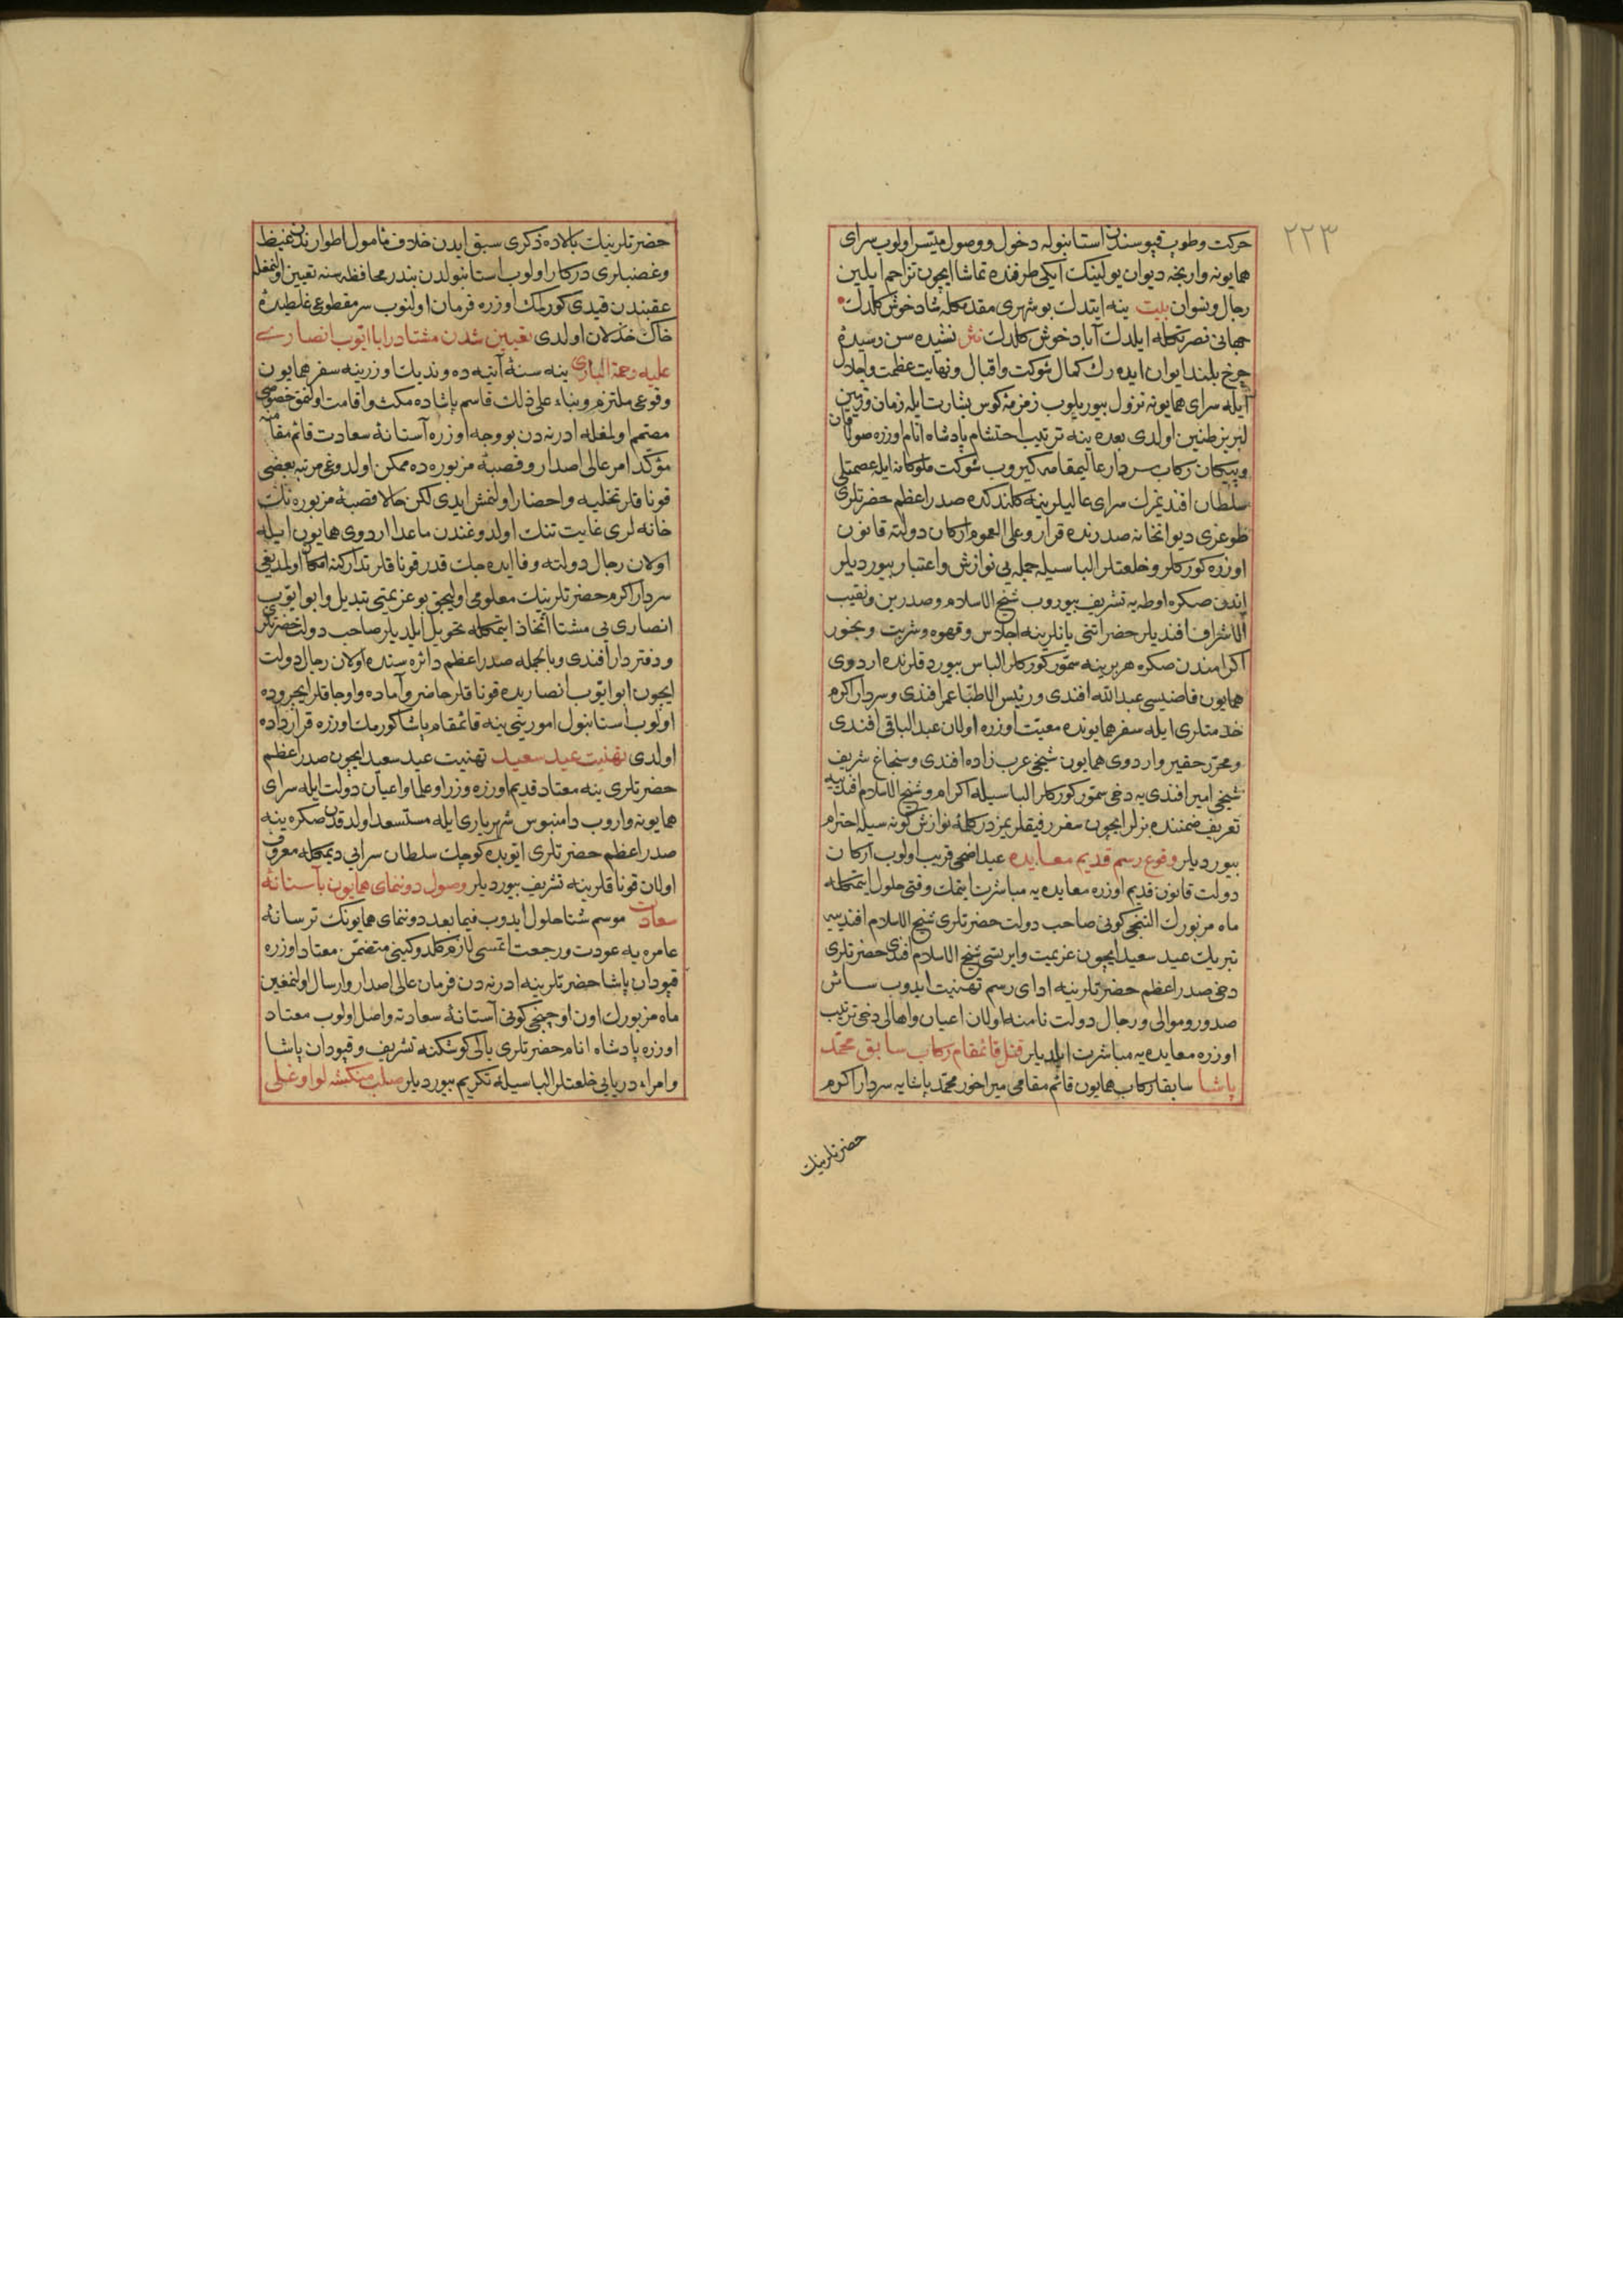 ٢٢٣
حرکت وطوپ قپوسندن استانبوله دخول ووصول میسر اولوب سرای
همایونه وارنجه دیوان یولینک ایکی طرفنده تماشا ایچون تزاحم ایلین
رجال ونسوان بیت ینه ایتدك بو شهری مقدمکله شاد خوش کلدك
جهانی نصرتکله ایلدك آباد خوش کلدك نثر نشیده سن رسیدهٔ
چرخ بلند ایوان ایده رك کمال شوکت واقبال ونهایت عظمت واجلال
ایله سرای همایونه نزول بیوریلوب زمزمهٔ کوس بشارت ایله زمان وزمین
لبریز طنین اولدی بعده ینه ترتیب احتشام پادشاه انام اوزره صولاقان
وپیکان رکاب سردار عالیمقامه کیروب شوکت ملوکانه ایله عصمتلی
سلطان افندیمزك سرای عالیلرینه کلندکده صدر اعظم حضرتلری
طوغری دیوانخانه صدرنده قرار وعلی العموم ارکان دولته قانون
اوزره کورکلر وخلعتلر الباسیله جمله یی نوازش واعتبار بیوردیلر
اندن صکره اوطه یه تشریف بیوروب شیخ الاسلام وصدرین ونقیب
الاشراف افندیلر حضراتنی یانلرینه اجلاس وقهوه وشربت وبخور
اکرامندن صکره هر برینه سمور کورکلر الباس بیوردقلرنده اردوی
همایون قاضیسی عبد الله افندی ورئیس الاطبا عمر افندی وسردار اکرم
خدمتلری ایله سفر همایونده معیت اوزره اولان عبد الباقی افندی
ومحرر حقیر واردوی همایون شیخی عرب زاده افندی وسنجاغ شریف
شیخی امیر افندی یه دخی سمور کورکلر الباسیله اکرام وشیخ الاسلام افندی یه
تعریف ضمننده بزلر ایچون سفر رفیقلریمزدر کلمهٔ نوازش کونه سیله احترام
بیوردیلر وقوع رسم قدیم معایده عید اضحی قریب اولوب ارکان
دولت قانون قدیم اوزره معایده یه مباشرت ایتمك وقتی حلول ایتمکله
ماه مزبورك التنجی کونی صاحب دولت حضرتلری شیخ الاسلام افندی یه
تبریك عید سعید ایچون عزیمت وایرتسی شیخ الاسلام افندی حضرتلری
دخی صدر اعظم حضرتلرینه ادای رسم تهنیت ایدوب سائر
صدور وموالی ورجال دولت نامنه اولان اعیان واهالی دخی ترتیب
اوزره معایده یه مباشرت ایلدیلر قتل قائمقام رکاب سابق محمد
پاشا سابقا رکاب همایون قائم مقامی میراخور محمد پاشایه سردار اکرم
حضرتلرینك
حضرتلرینك بالاده ذکری سبق ایدن خلاف مأمول اطوارندن غیظ
وغضبلری درکار اولوب استانبولدن بندر محافظه سنه تعیین اولنمغله
عقبندن قیدی کورلمك اوزره فرمان اولنوب سر مقطوعی غلطیدهٔ
خاك خذلان اولدی تعیین شدن مشتا در ابا ایوب انصاری
علیه رحمة الباری ینه سنهٔ آتیه ده وندیك اوزرینه سفر همایون
وقوعی ملتزم وبناء علی ذلك قاسم پاشاده مکث واقامت اولنمق خصوصی
مصمم اولمغله ادرنه دن بو وجه اوزره آستانهٔ سعادت قائم مقامنه
مؤکد امر عالی اصدار وقصبهٔ مزبوره ده ممکن اولدوغی مرتبه بعضی
قوناقلر تخلیه واحضار اولنمش ایدی لکن حالا قصبهٔ مزبوره نك
خانه لری غایت تنك اولدوغندن ماعدا اردوی همایون ایله
اولان رجال دولته وفا ایده جك قدر قوناقلر تدارکنه امکان اولمدیغی
سردار اکرم حضرتلرینك معلومی اولیجق بو عزیمتی تبدیل وابو ایوب
انصاری یی مشتا اتخاذ ایتمکله تحویل ایلدیلر صاحب دولت حضرتلری
ودفتردار افندی وبالجمله صدر اعظم دائره سنده اولان رجال دولت
ایچون ابو ایوب انصاریده قوناقلر حاضر وآماده واوجاقلر ایچروده
اولوب استانبول امورینی ینه قائمقام پاشا کورمك اوزره قرارداده
اولدی تهنیت عید سعید تهنیت عید سعید ایچون صدر اعظم
حضرتلری ینه معتاد قدیم اوزره وزرا وعلما واعیان دولت ایله سرای
همایونه واروب دامنبوس شهریاری ایله مستسعد اولدقدن صکره ینه
صدر اعظم حضرتلری ایوبده کوچك سلطان سرایی دیمکله معروف
اولان قوناقلرینه تشریف بیوردیلر وصول دوننمای همایون بآستانهٔ
سعادت موسم شتا حلول ایدوب فیما بعد دوننمای همایونك ترسانهٔ
عامره یه عودت ورجعت ایتمسی لازم کلدوکینی متضمن معتاد اوزره
قپودان پاشا حضرتلرینه ادرنه دن فرمان عالی اصدار وارسال اولنمغین
ماه مزبورك اون اوچنجی کونی آستانهٔ سعادته واصل اولوب معتاد
اوزره پادشاه انام حضرتلری یالی کوشکنه تشریف وقپودان پاشا
وامراء دریایی خلعتلر الباسیله تکریم بیوردیلر صلب مینکشه لو اوغلی